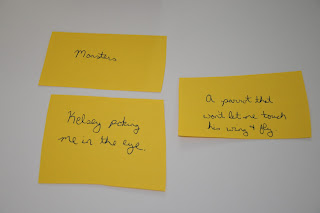 Monsters
Kelsey poking
me in the eye.
A parrot that
wont let me touch
his wing & fly